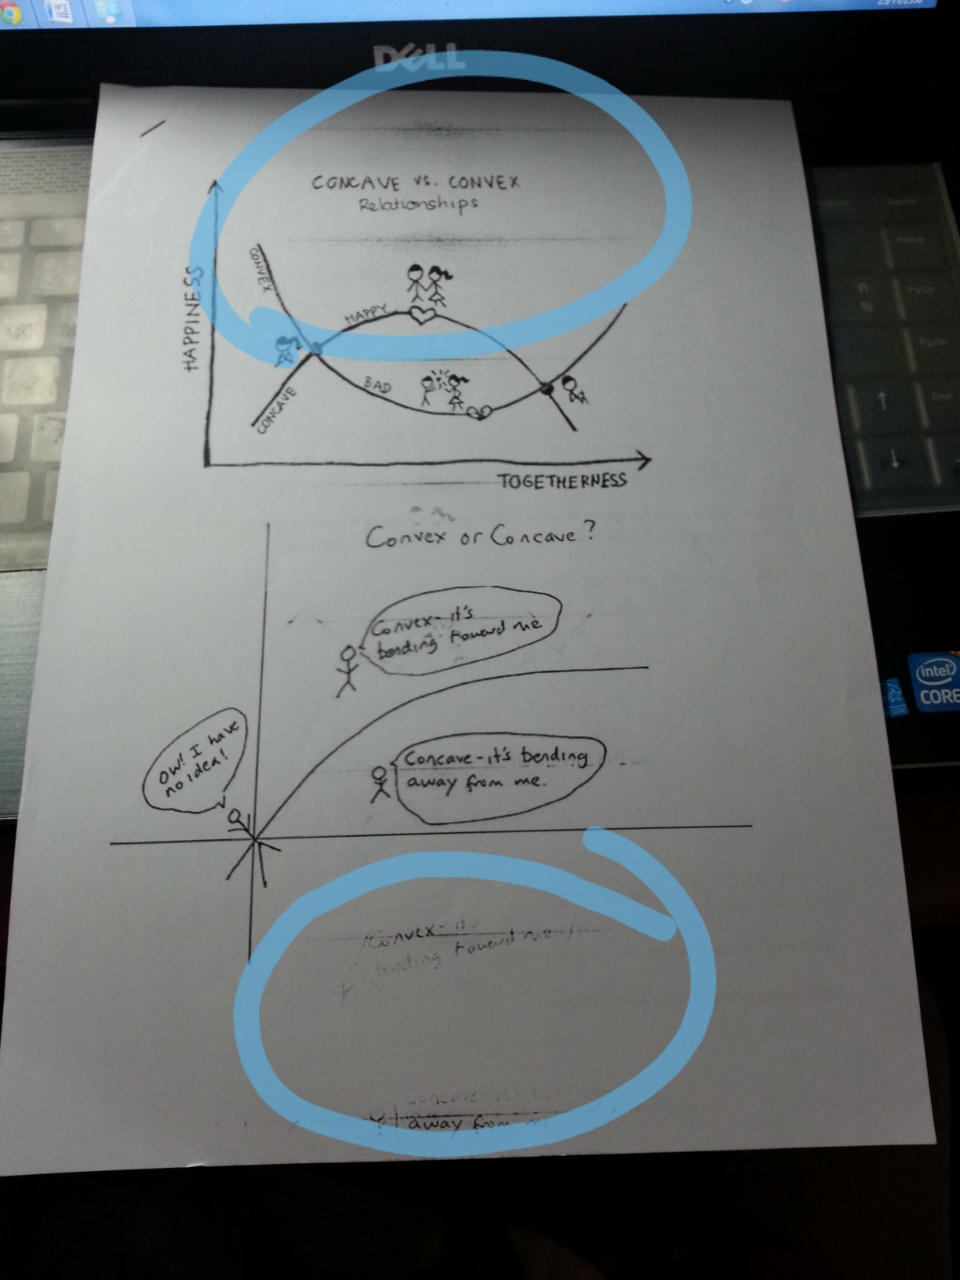 DELL
CONCAVE vs. CONVEX
Relationships
HAPPINESS
CONVEX
HAPPY
BAD
CONCAVE
TOGETHERNESS
Convex or Concave?
Convex-it's
bending toward me
OW! I have
no idea!
Concave-it's bending
away from me.
Convex-it's
bending toward me
Concave
away from me
intel
CORE
PgUp
PgDn
End